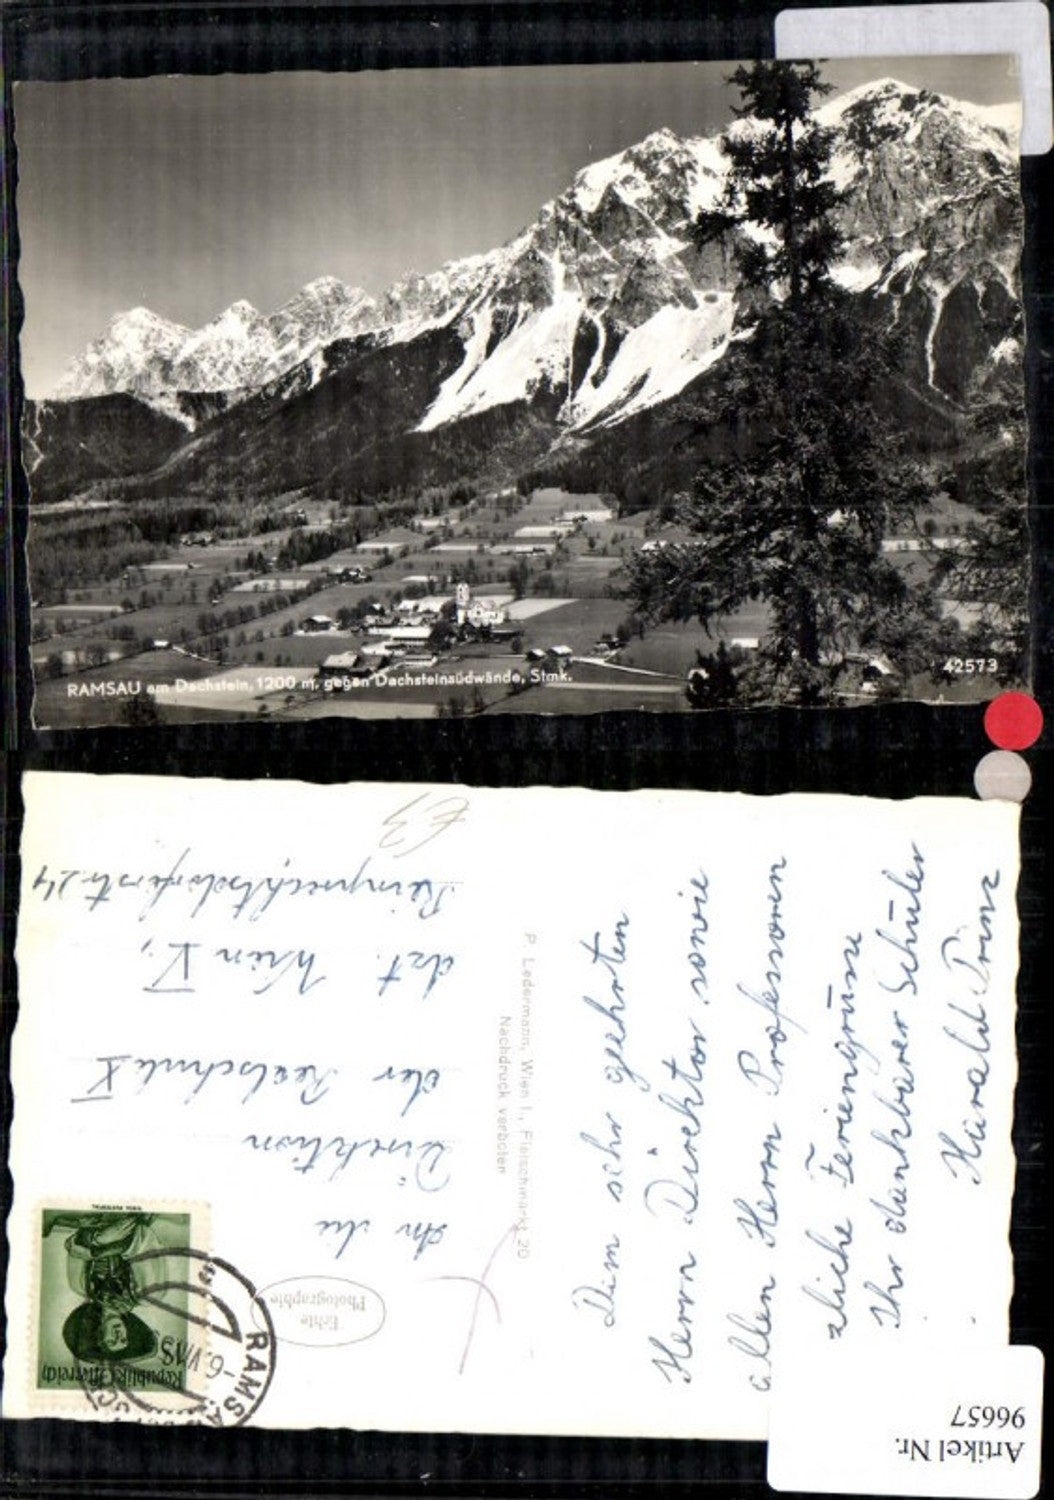 RAMSAU am Dachstein, 1200 m, gegen Dachsteinsüdwände, Stmk.
42573
Dem sehr geehrten
Herrn Direktor sowie
allen Herrn Professoren
zliche Feriengrüsse
Ihr dankbarer Schüler
Harald Prinz
P. Ledermann, Wien I., Fleischmarkt 20
Nachdruck verboten
Echte
Photographie
An die
Direktion
der Realschule X
dzt. Wien V.,
Reinprechtsdorferstr. 24
€3
Republik Österreich
RAMSAU
-6.VIII
Artikel Nr.
96657